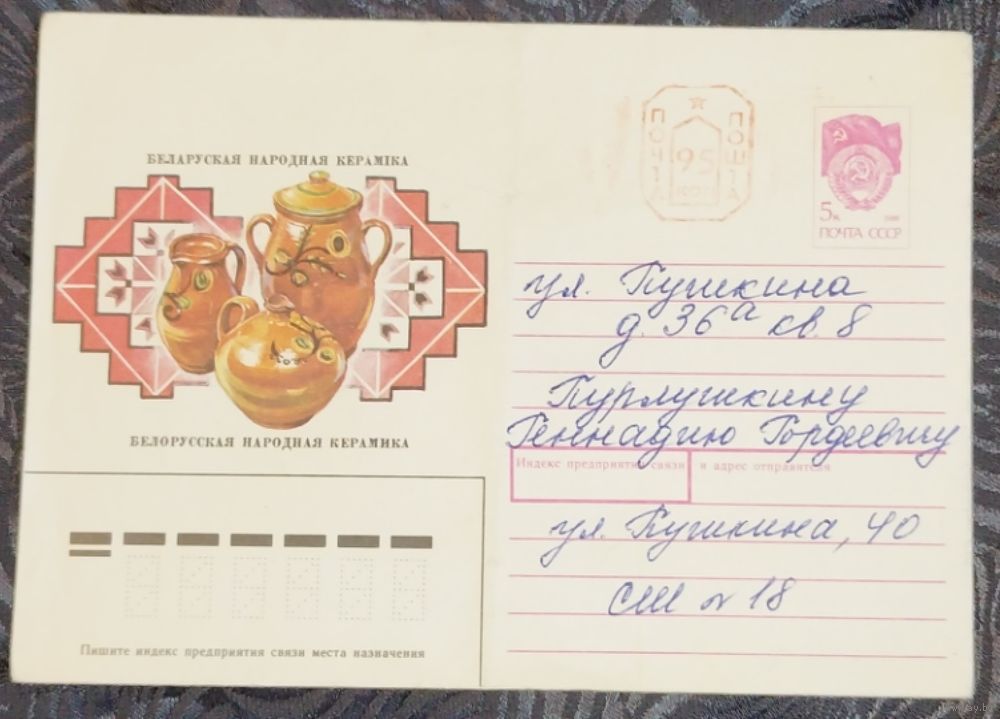 БЕЛАРУСКАЯ НАРОДНАЯ КЕРАМІКА
БЕЛОРУССКАЯ НАРОДНАЯ КЕРАМИКА
Пишите индекс предприятия связи места назначения
ПОЧТА
95
ПОШТА
5к
ПОЧТА СССР
ул. Пушкина
д. 36а кв. 8
Пурлушкину
Геннадию Гордеевичу
Индекс предприятия связи и адрес отправителя
ул. Пушкина, 40
СШ № 18